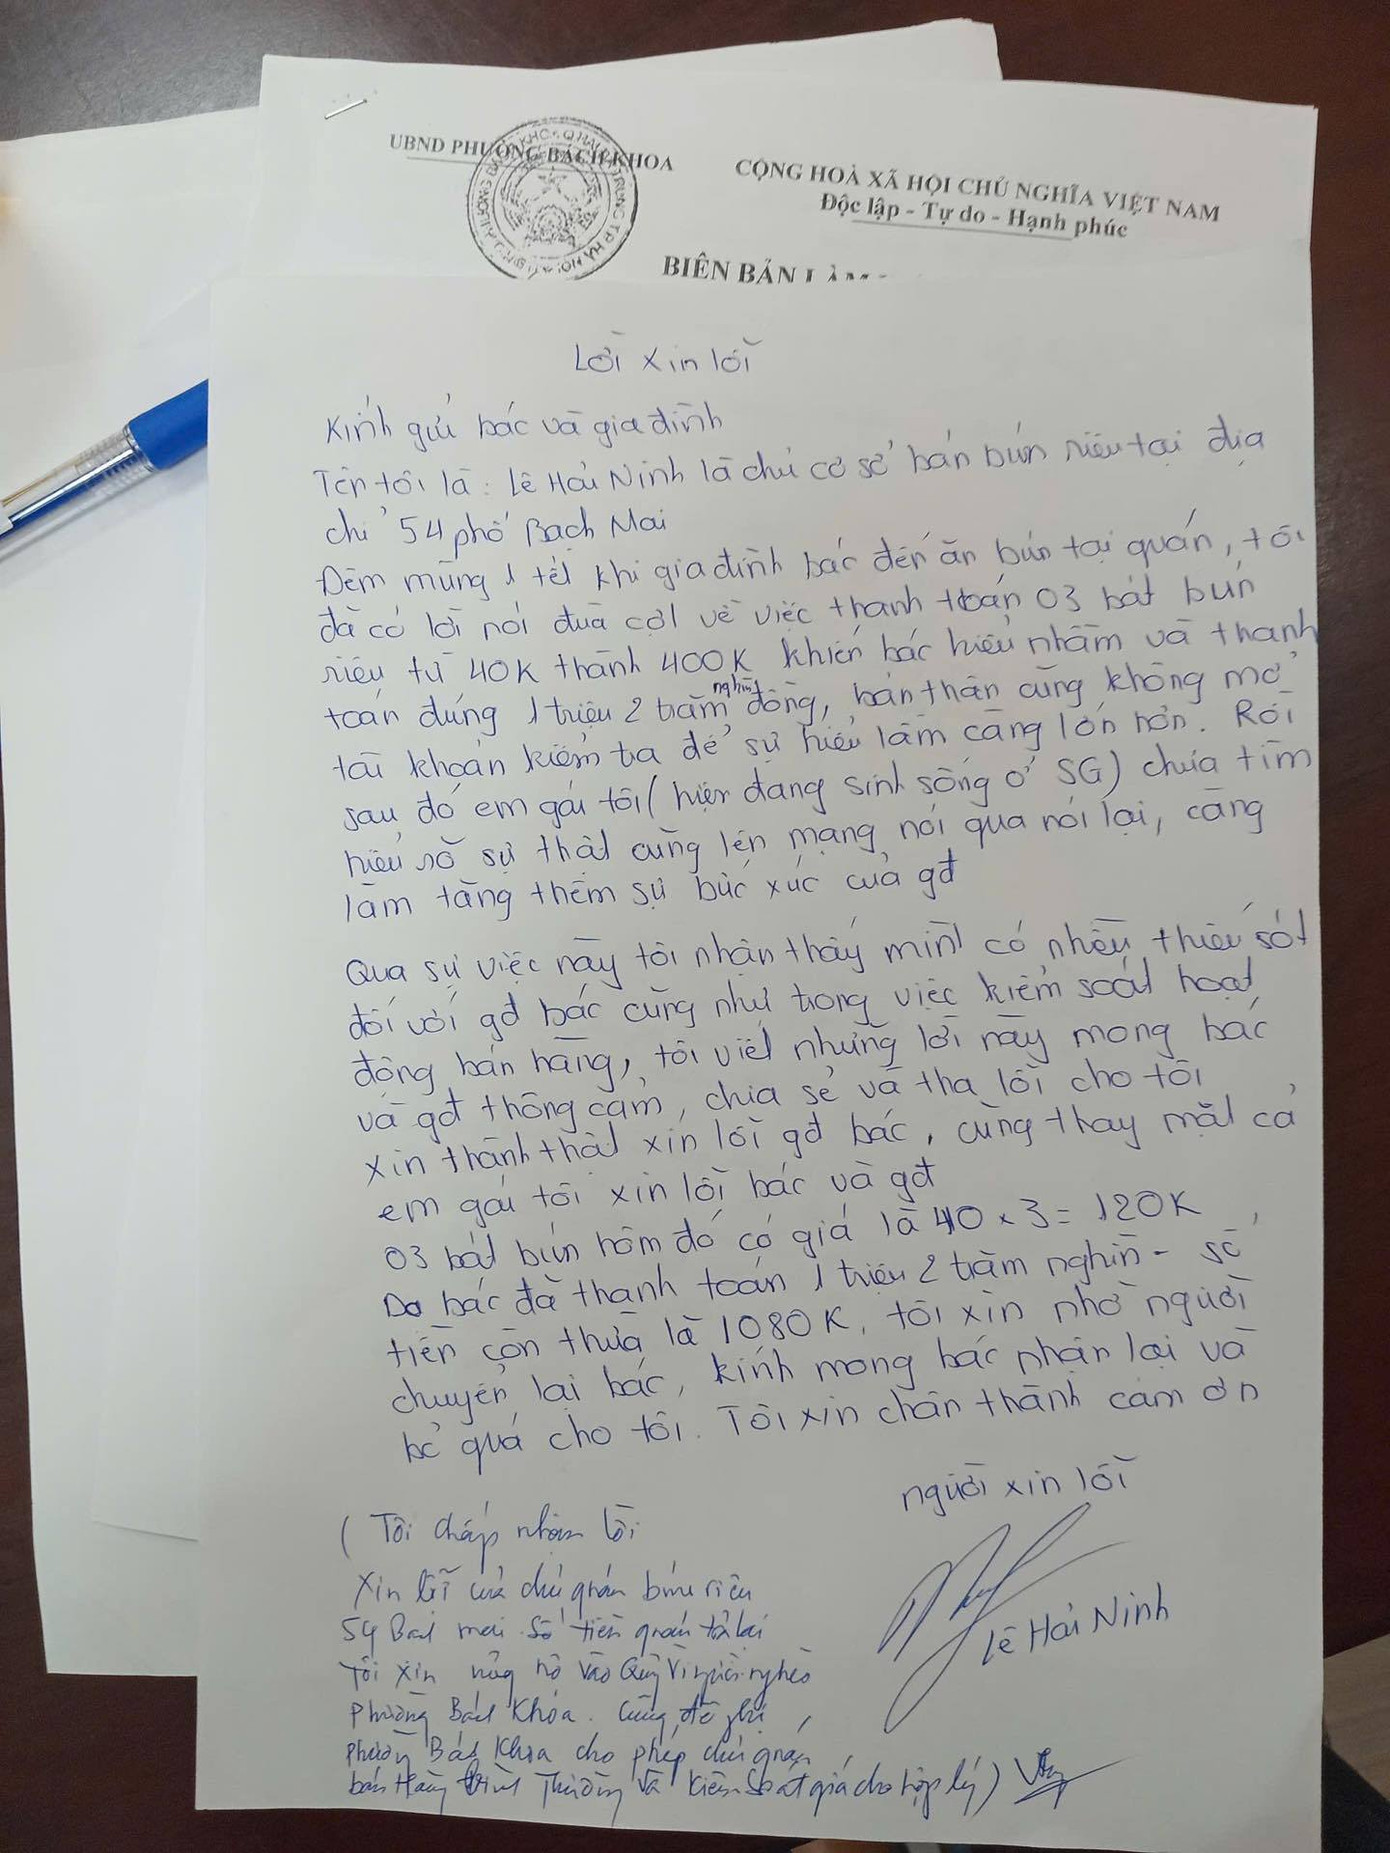 UBND PHƯỜNG BÁCH KHOA
CỘNG HOÀ XÃ HỘI CHỦ NGHĨA VIỆT NAM
Độc lập - Tự do - Hạnh phúc
BIÊN BẢN LÀM
Lời xin lỗi
Kính gửi bác và gia đình
Tên tôi là: Lê Hải Ninh là chủ cơ sở bán bún riêu tại địa
chỉ 54 phố Bạch Mai
Đêm mùng 1 tết khi gia đình bác đến ăn bún tại quán, tôi
đã có lời nói đùa cợt về việc thanh toán 03 bát bún
riêu từ 40K thành 400K khiến bác hiểu nhầm và thanh
toán đúng 1 triệu 2 trăm nghìn đồng, bản thân cũng không mở
tài khoản kiểm tra để sự hiểu lầm càng lớn hơn. Rồi
sau đó em gái tôi (hiện đang sinh sống ở SG) chưa tìm
hiểu rõ sự thật cũng lên mạng nói qua nói lại, càng
làm tăng thêm sự bức xúc của gđ
Qua sự việc này tôi nhận thấy mình có nhiều thiếu sót
đối với gđ bác cũng như trong việc kiểm soát hoạt
động bán hàng, tôi viết những lời này mong bác
và gđ thông cảm, chia sẻ và tha lỗi cho tôi
xin thành thật xin lỗi gđ bác, cùng thay mặt cả
em gái tôi xin lỗi bác và gđ
03 bát bún hôm đó có giá là 40 x 3 = 120K
Do bác đã thanh toán 1 triệu 2 trăm nghìn - số
tiền còn thừa là 1080K, tôi xin nhờ người
chuyển lại bác, kính mong bác nhận lại và
bỏ quá cho tôi. Tôi xin chân thành cảm ơn
người xin lỗi
Lê Hải Ninh
( Tôi chấp nhận lời
xin lỗi của chủ quán bún riêu
54 Bạch mai. Số tiền quán trả lại
Tôi xin ủng hộ vào Quỹ Vì người nghèo
Phường Bách Khoa. Cũng đề nghị
Phường Bách Khoa cho phép chủ quán
bán Hàng bình Thường và kiểm soát giá cho hợp lý )